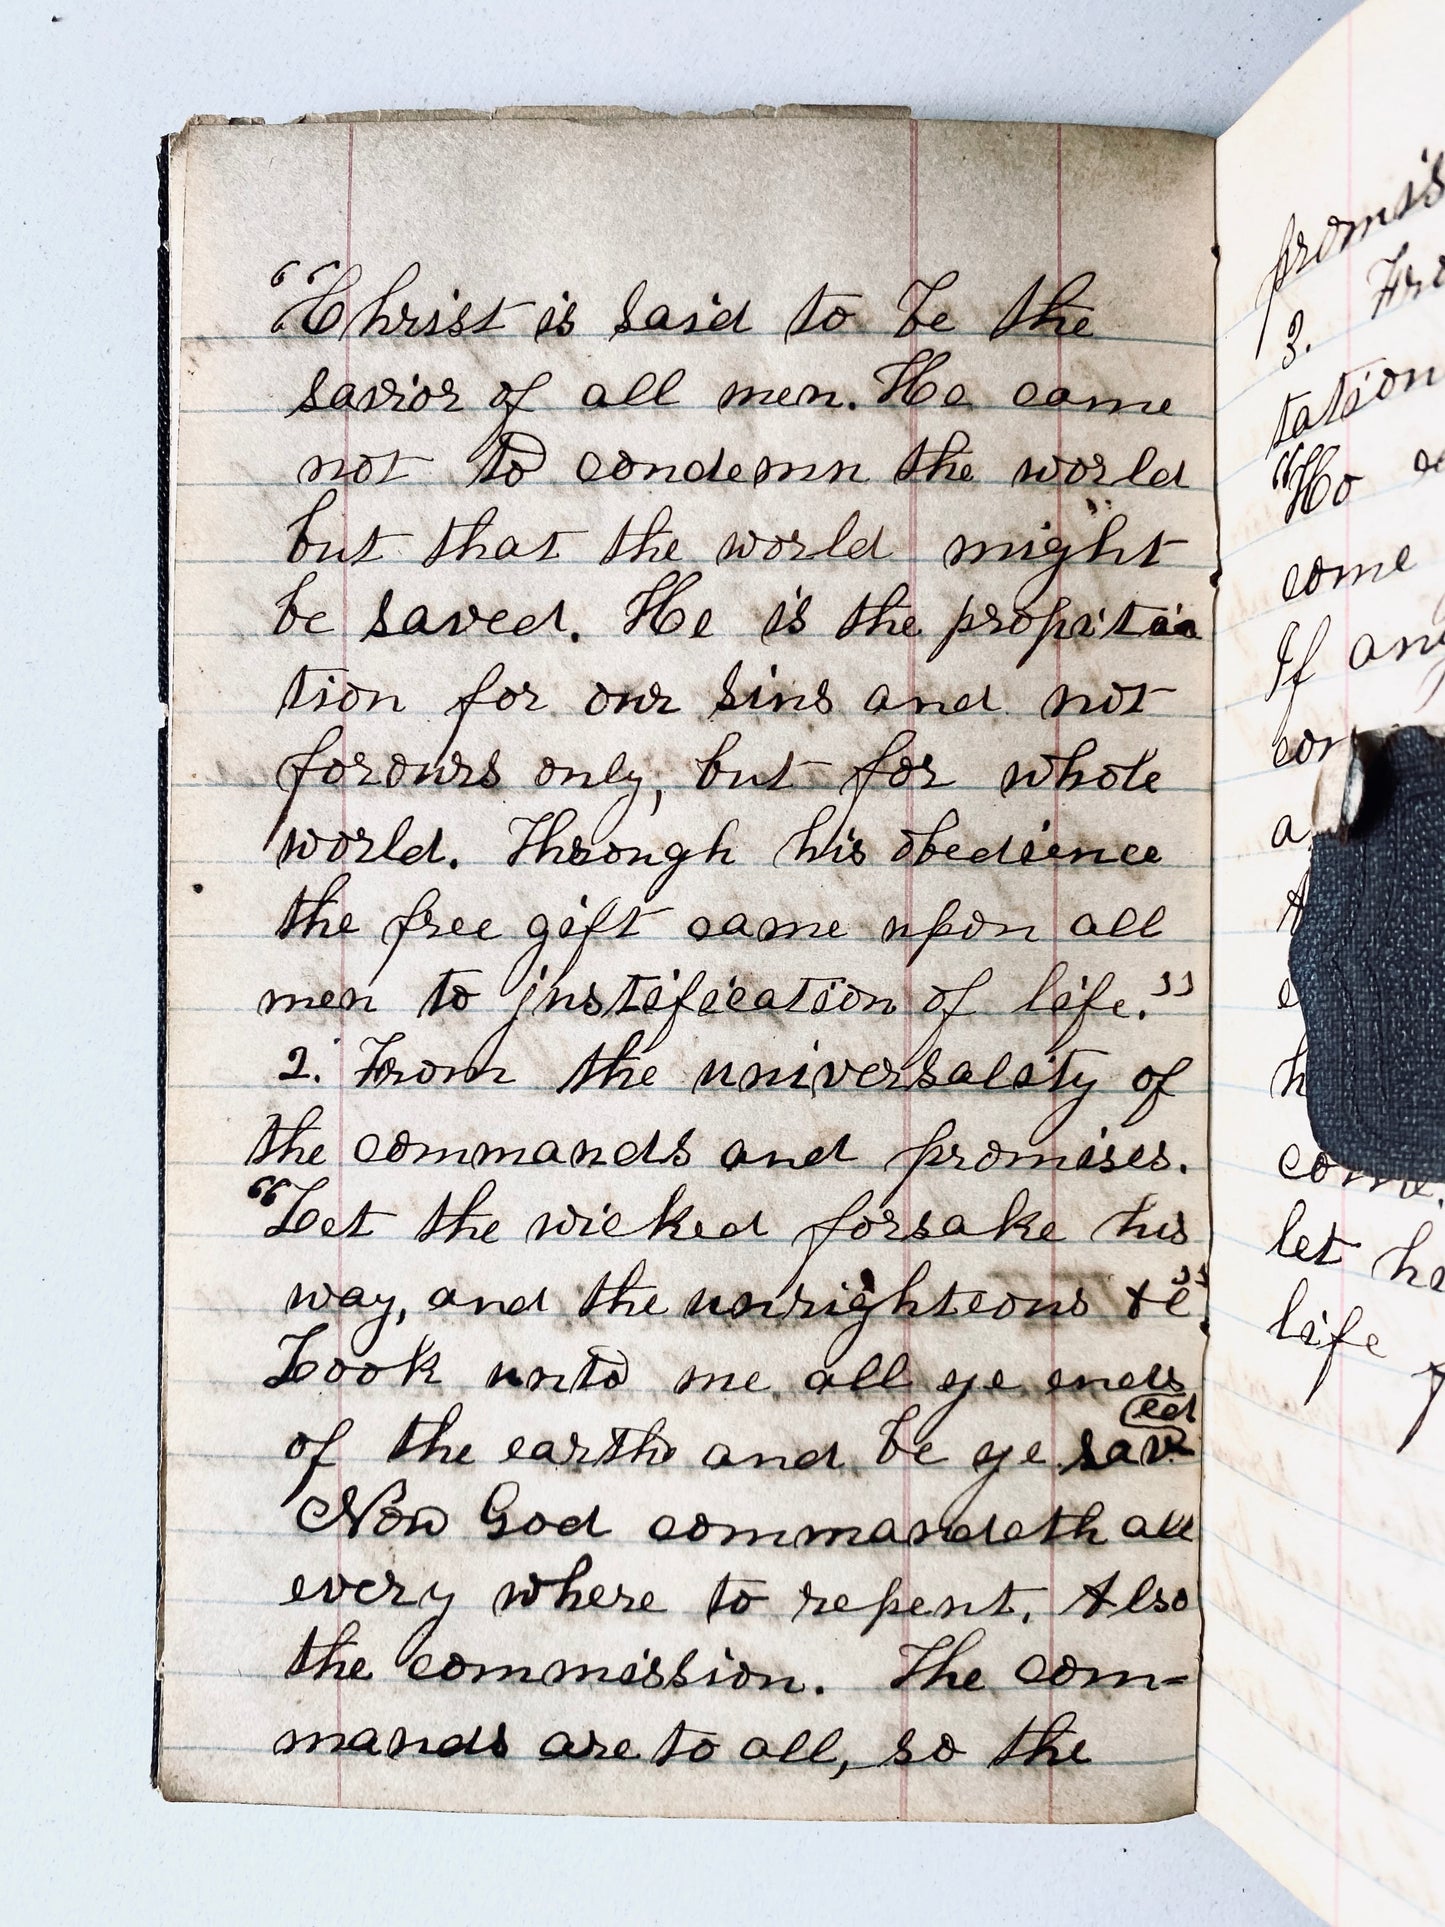 "Christ is said to be the
savior of all men. He came
not to condemn the world
but that the world might
be saved. He is the propitia
tion for our sins and not
for ours only, but for whole
world. Through his obedience
the free gift came upon all
men to justification of life."
2. From the universality of
the commands and promises.
"Let the wicked forsake his
way, and the unrighteous &c"
Look unto me all ye ends
of the earth and be ye saved
Now God commandeth all
every where to repent. Also
the commission. The com=
mands are to all, so the
3.
tation
"Ho
come
If any
let
life